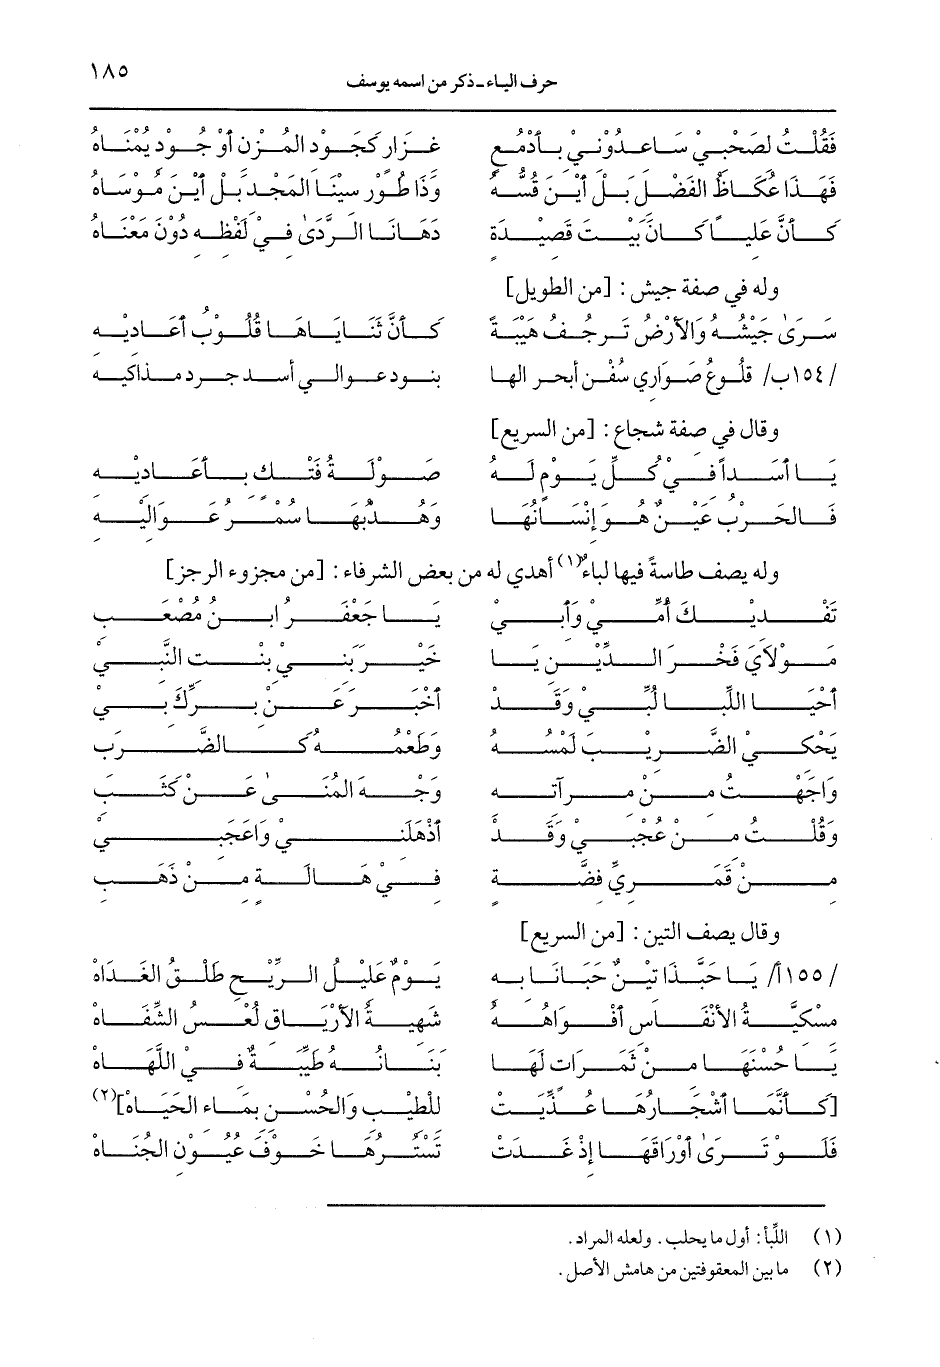 حرف الياء ـ ذكر من اسمه يوسف ١٨٥
فَقُلْتُ لصَحْبِيْ سَاعِدُوْنِيْ بِأَدْمُعٍ غِزَارٍ كَجَوْدِ المُزْنِ أَوْ جُوْدِ يُمْنَاهُ
فَهَذَا عُكَاظُ الفَضْلِ بَلْ أَيْنَ قُسُّهُ وَذَا طُوْرُ سِيْنَا المَجْدِ بَلْ أَيْنَ مُوْسَاهُ
كَأَنَّ عَلِيَّاً كَانَ بَيْتَ قَصِيْدَةٍ دَهَانَا الرَّدَىٰ فِيْ لَفْظِهِ دُوْنَ مَعْنَاهُ
وله في صفة جيش : [من الطويل]
سَرَىٰ جَيْشُهُ وَالأَرْضُ تَرجُفُ هَيْبَةً كَأَنَّ ثَنَايَاهَا قُلُوْبُ أَعَادِيْهِ
/١٥٤ب/ قلُوعُ صَوَارِي سُفْنِ أبحر الها بنود عوالي أسد جرد مذاكيه
وقال في صفة شجاع : [من السريع]
يَا أَسَداً فِيْ كُلِّ يَوْمٍ لَهُ صَوْلَةُ فَتْكٍ بِأَعَادِيْهِ
فَالحَرْبُ عَيْنٌ هُوَ إِنْسَانُهَا وَهُدْبُهَا سُمْرُ عَوَالِيْهِ
وله يصف طاسةً فيها لباءٌ(١) أهدي له من بعض الشرفاء : [من مجزوء الرجز]
تَفْدِيْكَ أُمِّيْ وَأَبِيْ يَا جَعْفَرُ ابْنُ مُصْعَبِ
مَوْلاَيَ فَخْرَ الدِّيْنِ يَا خَيْرَ بَنِيْ بِنْتِ النَّبِيْ
أَحْيَا اللِّبَا لُبِّيْ وَقَدْ أَخْبَرَ عَنْ بِرِّكَ بِيْ
يَحْكِيْ الضَّرِيْبَ لَمْسُهُ وَطَعْمُهُ كَالضَّرَبِ
وَاجَهْتُ مِنْ مِرآتِهِ وَجْهَ المُنَىٰ عَنْ كَثَبِ
وَقُلْتُ مِنْ عُجْبِيْ وَقَدْ أَذْهَلَنِيْ وَاعَجَبِيْ
مِنْ قَمَرِيِّ فِضَّةٍ فِيْ هَالَةٍ مِنْ ذَهَبِ
وقال يصف التين : [من السريع]
/١٥٥أ/ يَا حَبَّذَا تِيْنٌ حَبَانَا بِهِ يَوْمٌ عَلِيْلُ الرِّيْحِ طَلْقُ الغَدَاهْ
مِسْكِيَّةُ الأَنْفَاسِ أَفْوَاهُهُ شَهِيةُ الأَرْيَاقِ لُعْسُ الشِّفَاهْ
يَا حُسْنَهَا مِنْ ثَمَرَاتٍ لَهَا بَنَانُهُ طَيِّبَةٌ فِيْ اللَّهَاهْ
[كَأَنَّمَا أَشْجَارُهَا غُذِّيَتْ لِلطِّيْبِ وَالحُسْنِ بِمَاءِ الحَيَاهْ](٢)
فَلَوْ تَرَىٰ أَوْرَاقَهَا إِذْ غَدَتْ تَسْتُرُهَا خَوْفَ عُيُوْنِ الجُنَاهْ
(١) اللِّبأ : أول ما يحلب . ولعله المراد .
(٢) ما بين المعقوفتين من هامش الأصل .